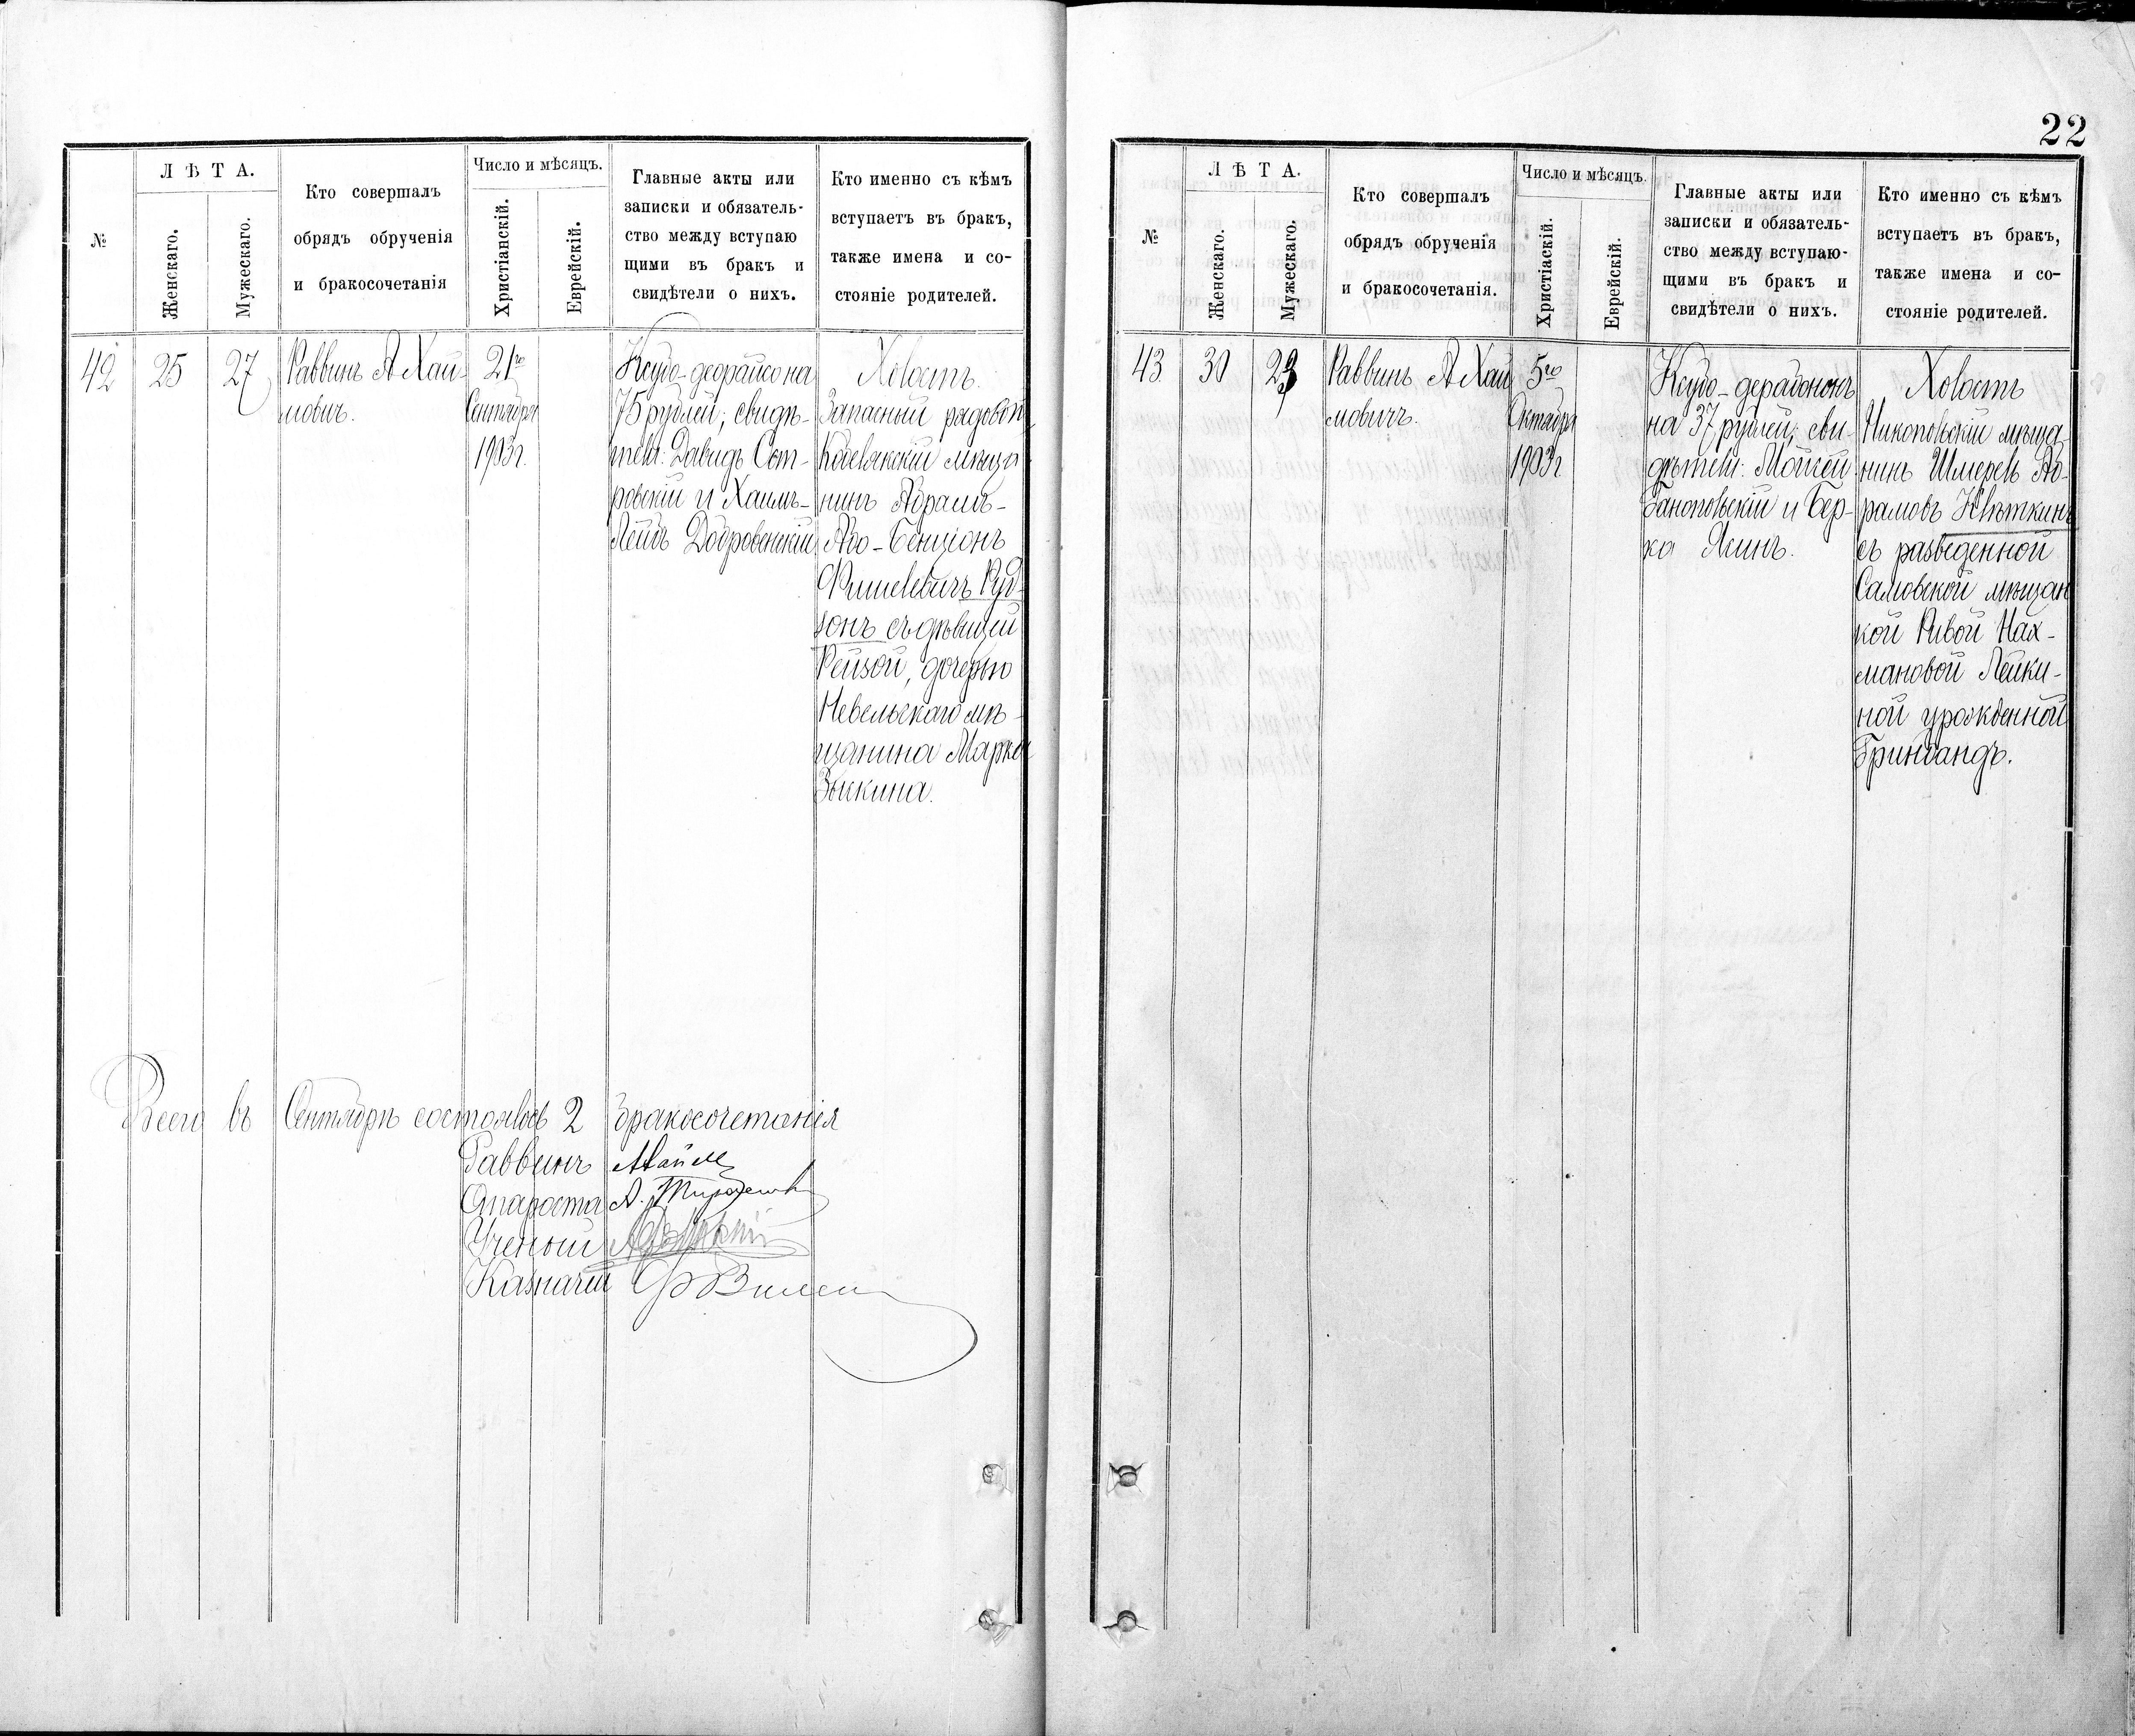 №
ЛѢТА.
Женскаго.
Мужескаго.
Кто совершалъ
обрядъ обрученія
и бракосочетанія
Число и мѣсяцъ.
Христіанскій.
Еврейскій.
Главные акты или
записки и обязатель-
ство между вступаю
щими въ бракъ и
свидѣтели о нихъ.
Кто именно съ кѣмъ
вступаетъ въ бракъ,
также имена и со-
стояніе родителей.
42
25
27
Раввинъ А Хай-
мовичъ.
21го
Сентября
1903 г.
Ксубо-деорайсо на
75 рублей; свидѣ-
тели: Давидъ Сот-
ровскій и Хаимъ-
Лейбъ Добровенскій
Холостъ.
Запасный рядовой
мѣща
нинъ Абрамъ-
Або-Бенціонъ
Фишелевичъ Руб-
сонъ съ дѣвицей
Рейзой, дочерью
Невельскаго мѣ-
щанина Марка
Зыскина.
Всего въ Сентябрѣ состоялось 2 бракосочетанія
Раввинъ
Староста А.
Ученый
Казначей
22
№
ЛѢТА.
Женскаго.
Мужескаго.
Кто совершалъ
обрядъ обрученія
и бракосочетанія.
Число и мѣсяцъ.
Христіаскій.
Еврейскій.
Главные акты или
записки и обязатель-
ство между вступаю-
щими въ бракъ и
свидѣтели о нихъ.
Кто именно съ кѣмъ
вступаетъ въ бракъ,
также имена и со-
стояніе родителей.
43
30
23
Раввинъ А Хай
мовичъ.
5го
Октября
1903 г.
Ксубо-дерабононъ
на 37 рублей; сви-
дѣтели: Мойсей
Ганопольскій и Бер-
ка Ясинъ.
Холостъ
Никопольскій мѣща-
нинъ Шмерель Аб-
рамовъ Клѣткинъ
съ разведенной
мѣщан
кой Ривой Нах-
мановой Лейки-
ной урожденной
Гринландъ.